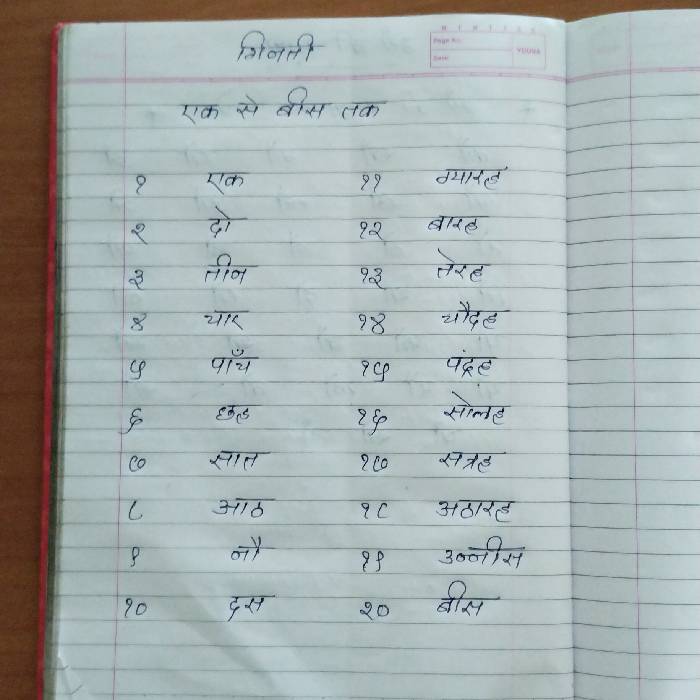 गिनती
Page No.
Date
YOUVA
एक से बीस तक
१ एक ११ ग्यारह
२ दो १२ बारह
३ तीन १३ तेरह
४ चार १४ चौदह
५ पाँच १५ पंद्रह
६ छह १६ सोलह
७ सात १७ सत्रह
८ आठ १८ अठारह
९ नौ १९ उन्नीस
१० दस २० बीस